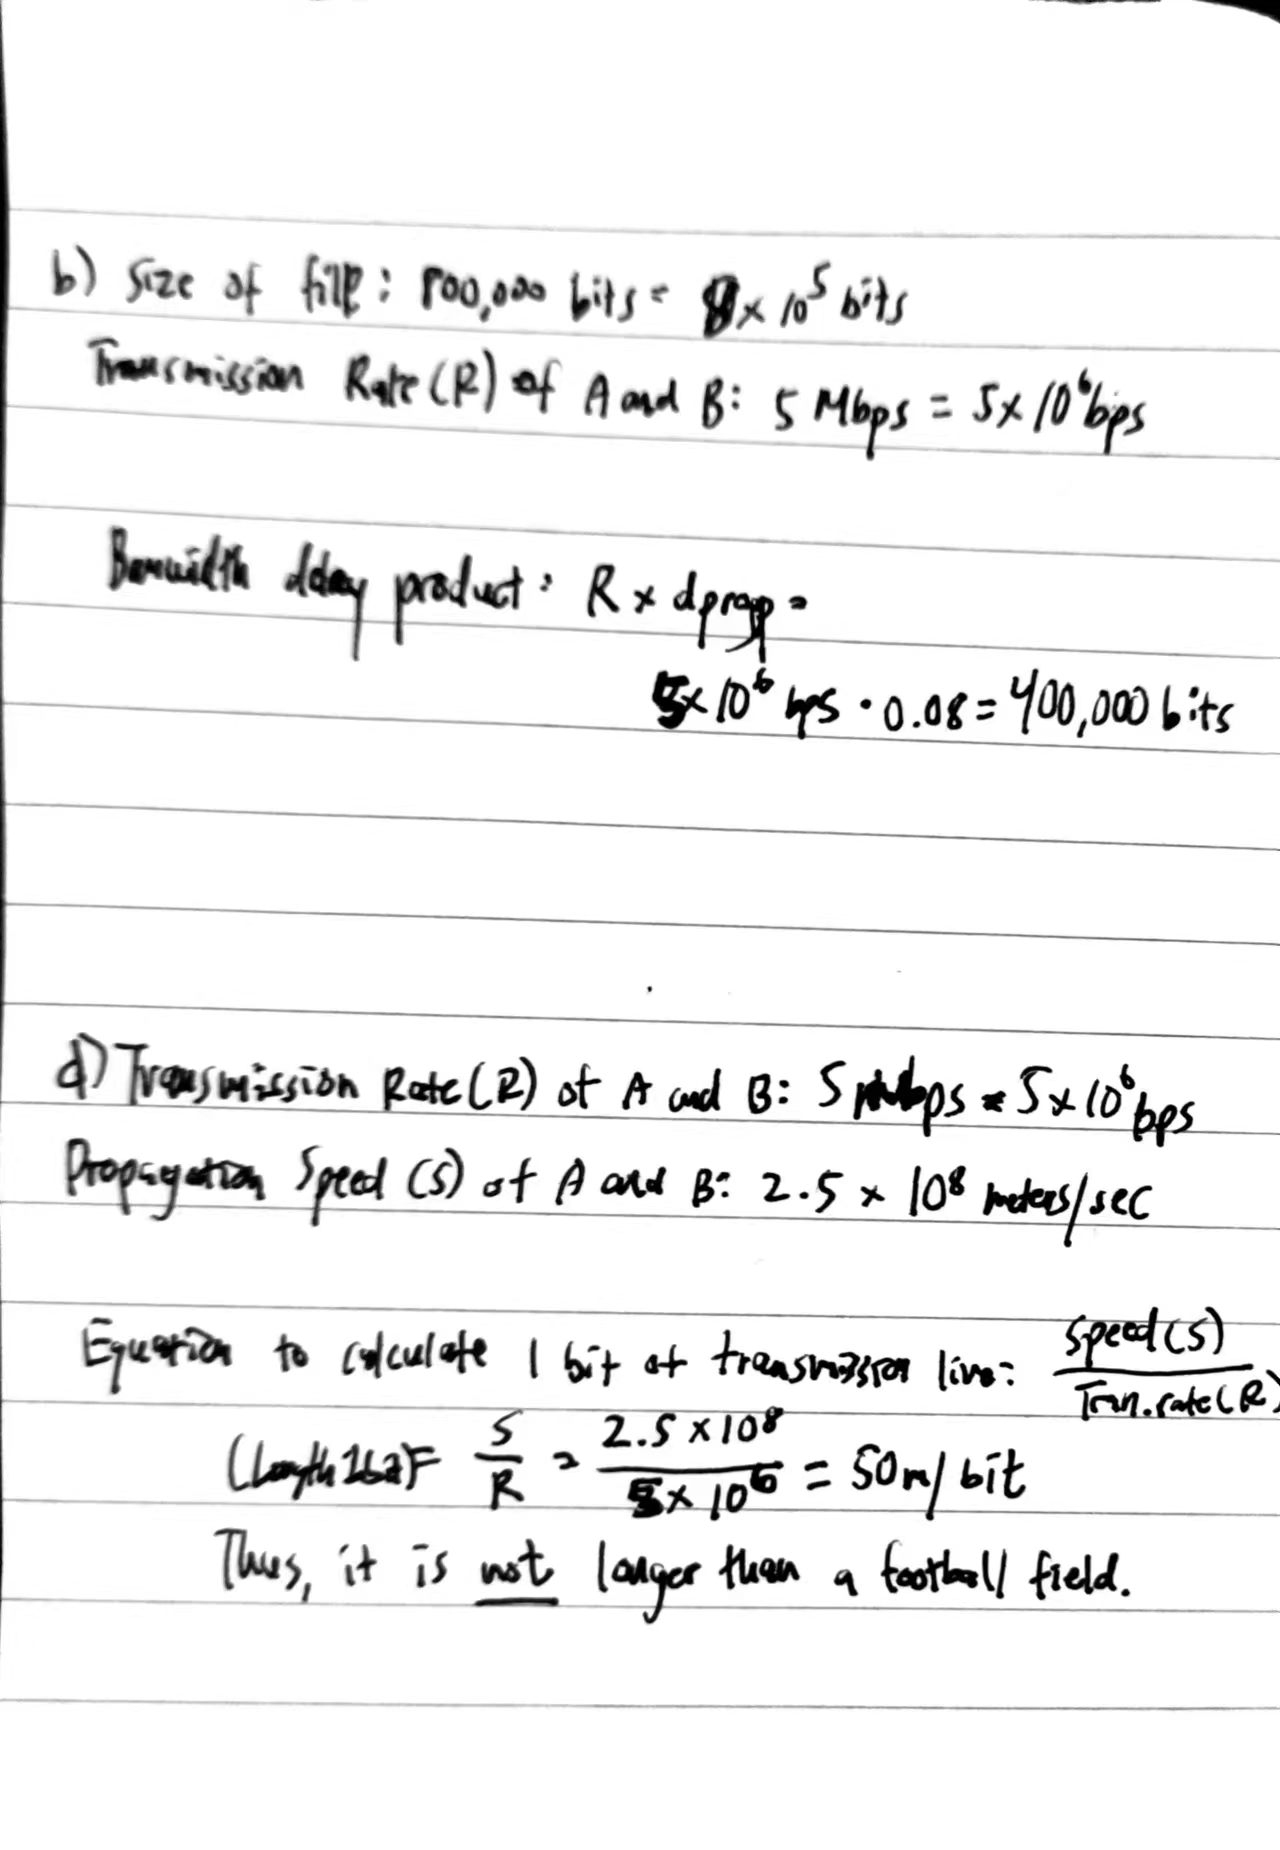 b) Size of file: 800,000 bits = 8 x 10^5 bits
Transmission Rate (R) of A and B: 5 Mbps = 5 x 10^6 bps
Banwidth delay product: R x dprop =
5x 10^6 bps · 0.08 = 400,000 bits
d) Transmission Rate (R) of A and B: 5 Mbps = 5 x 10^6 bps
Propagation Speed (S) of A and B: 2.5 x 10^8 meters/sec
Equation to calculate 1 bit of transmission line: Speed (S) / Tran. rate (R)
(Length 1 bit) = S / R = 2.5 x 10^8 / 5 x 10^6 = 50m/bit
Thus, it is not longer than a football field.